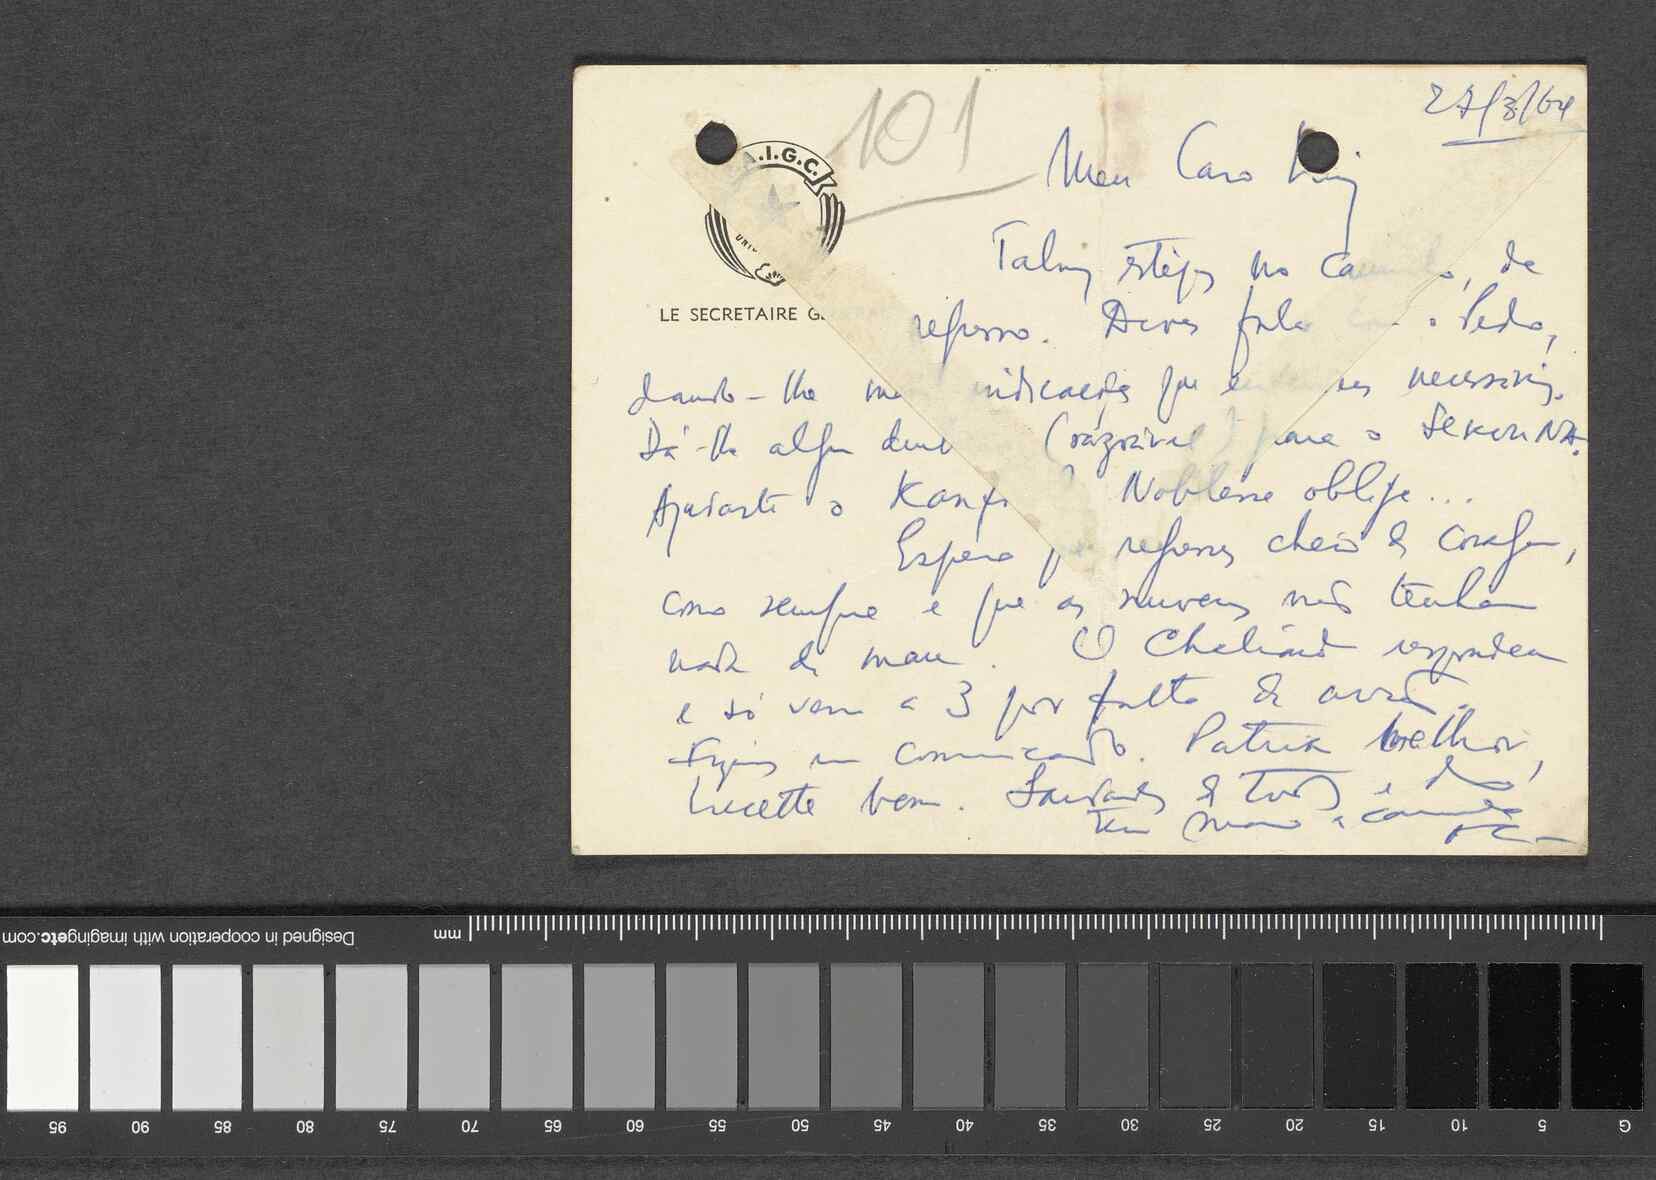 27/3/64
101
A.I.G.C.
LE SECRETAIRE GENERAL
Meu Caro
Talvez estejas no caminho, de
regresso. Deves falar com o Pedro,
dando-lhe indicações que necessárias.
Dá-lhe algum (razoável) para o SEKOU NA.
Ajudaste o Noblesse oblige...
Espero que regresses cheio de coragem,
como sempre e que as nuvens não tenham
nada de mau. O Chaliand respondeu
e só vem a 3 por falta de avião.
um comunicado. Patrick melhor,
Lucette bem. Saudades de todos e do
teu mano e camarada
Designed in cooperation with imagingetc.com
mm
95 90 85 80 75 70 65 60 55 50 45 40 35 30 25 20 15 10 5 G